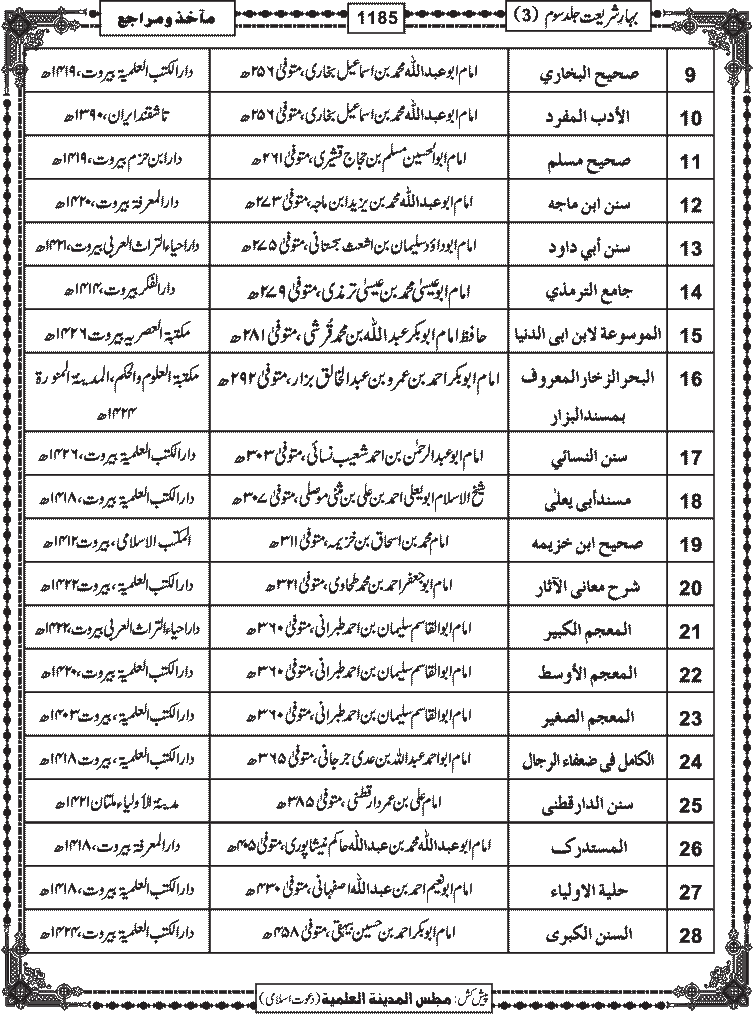 بہارِ شریعت جلد سوم (3)
1185
مآخذ و مراجع
9 صحيح البخاري امام ابو عبداللہ محمد بن اسماعیل بخاری، متوفیٰ ۲۵۶ھ دار الکتب العلمیۃ بیروت، ۱۴۱۹ھ
10 الأدب المفرد امام ابو عبداللہ محمد بن اسماعیل بخاری، متوفیٰ ۲۵۶ھ تاشقند ایران، ۱۳۹۰ھ
11 صحيح مسلم امام ابو الحسین مسلم بن حجاج قشیری، متوفیٰ ۲۶۱ھ دار ابن حزم بیروت، ۱۴۱۹ھ
12 سنن ابن ماجه امام ابو عبداللہ محمد بن یزید ابن ماجہ، متوفیٰ ۲۷۳ھ دار المعرفۃ بیروت، ۱۴۲۰ھ
13 سنن أبي داود امام ابو داؤد سلیمان بن اشعث سجستانی، متوفیٰ ۲۷۵ھ دار احیاء التراث العربی بیروت، ۱۴۲۱ھ
14 جامع الترمذي امام ابو عیسیٰ محمد بن عیسیٰ ترمذی، متوفیٰ ۲۷۹ھ دار الفکر بیروت، ۱۴۱۴ھ
15 الموسوعة لابن ابى الدنيا حافظ امام ابو بکر عبد اللہ بن محمد قرشی، متوفیٰ ۲۸۱ھ مکتبۃ العصریہ بیروت، ۱۴۲۶ھ
16 البحر الزخار المعروف امام ابو بکر احمد بن عمرو بن عبد الخالق بزار، متوفیٰ ۲۹۲ھ مکتبۃ العلوم والحکم، المدینۃ المنورۃ
بمسند البزار ۱۴۲۴ھ
17 سنن النسائي امام ابو عبد الرحمٰن بن احمد شعیب نسائی، متوفیٰ ۳۰۳ھ دار الکتب العلمیۃ بیروت، ۱۴۲۶ھ
18 مسند أبي يعلٰى شیخ الاسلام ابو یعلی احمد بن علی بن مثنی موصلی، متوفیٰ ۳۰۷ھ دار الکتب العلمیۃ بیروت، ۱۴۱۸ھ
19 صحيح ابن خزيمه امام محمد بن اسحاق بن خزیمہ، متوفیٰ ۳۱۱ھ المکتب الاسلامی، بیروت ۱۴۱۲ھ
20 شرح معانى الآثار امام ابو جعفر احمد بن محمد طحاوی، متوفیٰ ۳۲۱ھ دار الکتب العلمیۃ بیروت، ۱۴۲۲ھ
21 المعجم الكبير امام ابو القاسم سلیمان بن احمد طبرانی، متوفیٰ ۳۶۰ھ دار احیاء التراث العربی بیروت، ۱۴۲۲ھ
22 المعجم الأوسط امام ابو القاسم سلیمان بن احمد طبرانی، متوفیٰ ۳۶۰ھ دار الکتب العلمیۃ بیروت، ۱۴۲۰ھ
23 المعجم الصغير امام ابو القاسم سلیمان بن احمد طبرانی، متوفیٰ ۳۶۰ھ دار الکتب العلمیۃ، بیروت ۱۴۰۳ھ
24 الكامل فى ضعفاء الرجال امام ابو احمد عبداللہ بن عدی جرجانی، متوفیٰ ۳۶۵ھ دار الکتب العلمیۃ، بیروت ۱۴۱۸ھ
25 سنن الدار قطنى امام علی بن عمر دار قطنی، متوفیٰ ۳۸۵ھ مدینۃ الأولیاء ملتان ۱۴۲۱ھ
26 المستدرک امام ابو عبداللہ محمد بن عبداللہ حاکم نیشاپوری، متوفیٰ ۴۰۵ھ دار المعرفۃ بیروت، ۱۴۱۸ھ
27 حلية الاولياء امام ابو نعیم احمد بن عبداللہ اصفہانی، متوفیٰ ۴۳۰ھ دار الکتب العلمیۃ بیروت، ۱۴۱۸ھ
28 السنن الكبرى امام ابو بکر احمد بن حسین بیہقی، متوفیٰ ۴۵۸ھ دار الکتب العلمیۃ بیروت، ۱۴۲۴ھ
پیش کش: مجلس المدينة العلمية (دعوت اسلامی)